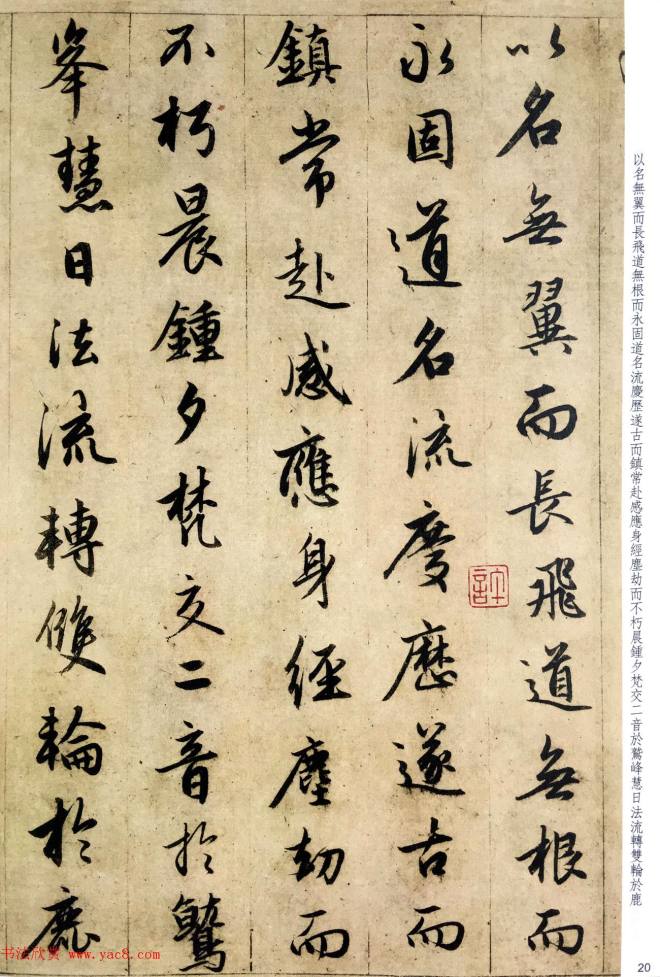 以名無翼而長飛道無根而
永固道名流慶歷遂古而
鎮常赴感應身經塵劫而
不朽晨鍾夕梵交二音於鷲
峯慧日法流轉雙輪於鹿
許
以名無翼而長飛道無根而永固道名流慶歷遂古而鎮常赴感應身經塵劫而不朽晨鍾夕梵交二音於鷲峰慧日法流轉雙輪於鹿
书法欣赏 www.yac8.com
20